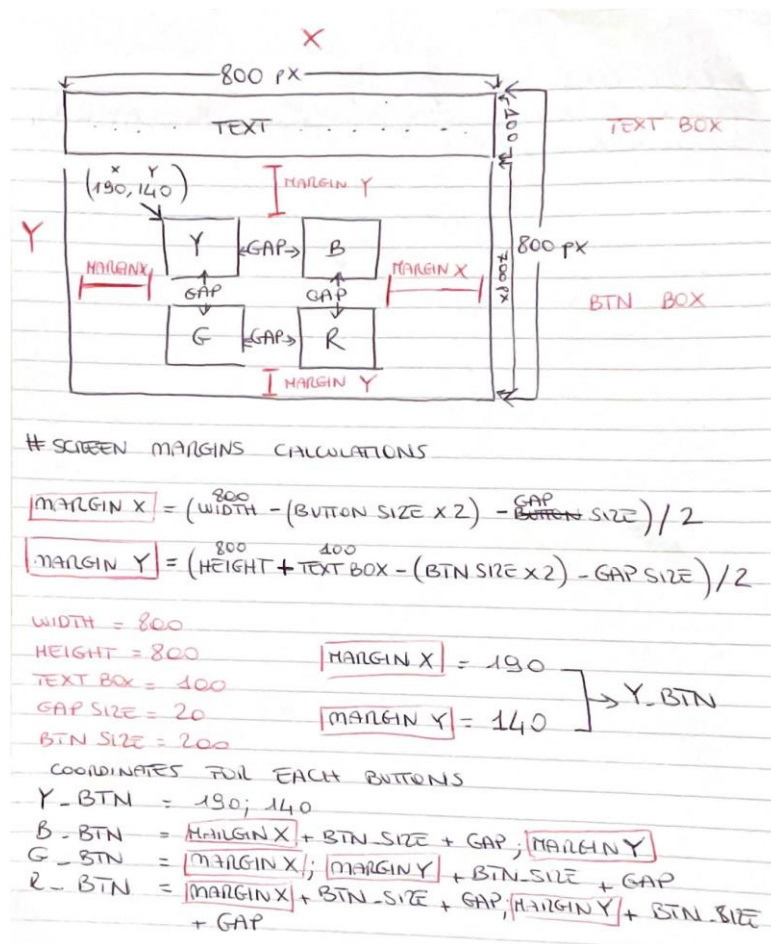 X
800 PX
TEXT
100
TEXT BOX
X Y
(190, 140)
MARGIN Y
Y
Y
GAP
B
800 PX
MARGIN X
MARGIN X
700 PX
GAP
GAP
BTN BOX
G
GAP
R
MARGIN Y
# SCREEN MARGINS CALCULATIONS
800 GAP
MARGIN X = (WIDTH - (BUTTON SIZE X 2) - BUTTON SIZE) / 2
800 100
MARGIN Y = (HEIGHT + TEXT BOX - (BTN SIZE X 2) - GAP SIZE) / 2
WIDTH = 800
HEIGHT = 800
MARGIN X = 190
TEXT BOX = 100
Y_BTN
GAP SIZE = 20
MARGIN Y = 140
BTN SIZE = 200
COORDINATES FOR EACH BUTTONS
Y_BTN = 190; 140
B_BTN = MARGIN X + BTN_SIZE + GAP; MARGIN Y
G_BTN = MARGIN X; MARGIN Y + BTN_SIZE + GAP
R_BTN = MARGIN X + BTN_SIZE + GAP; MARGIN Y + BTN_SIZE
+ GAP